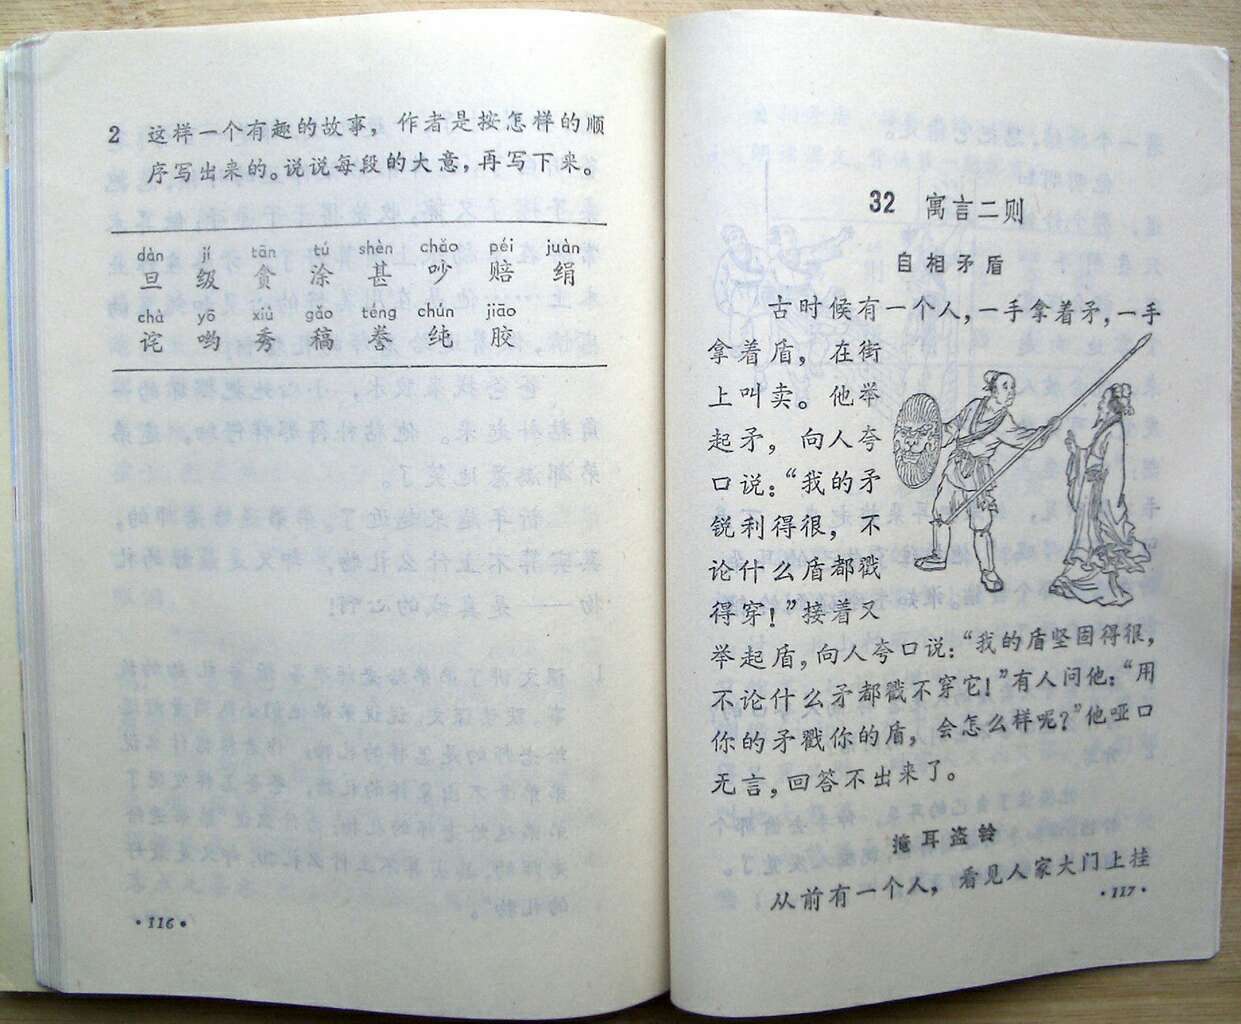 2 这样一个有趣的故事，作者是按怎样的顺
序写出来的。说说每段的大意，再写下来。
dàn jí tān tú shèn chǎo péi juàn
旦 级 贪 涂 甚 吵 赔 绢
chà yō xiù gǎo téng chún jiāo
诧 哟 秀 稿 誊 纯 胶
·116·
32 寓言二则
自相矛盾
古时候有一个人，一手拿着矛，一手
拿着盾，在街
上叫卖。他举
起矛，向人夸
口说：“我的矛
锐利得很，不
论什么盾都戳
得穿！”接着又
举起盾，向人夸口说：“我的盾坚固得很，
不论什么矛都戳不穿它！”有人问他：“用
你的矛戳你的盾，会怎么样呢？”他哑口
无言，回答不出来了。
掩耳盗铃
从前有一个人，看见人家大门上挂
·117·